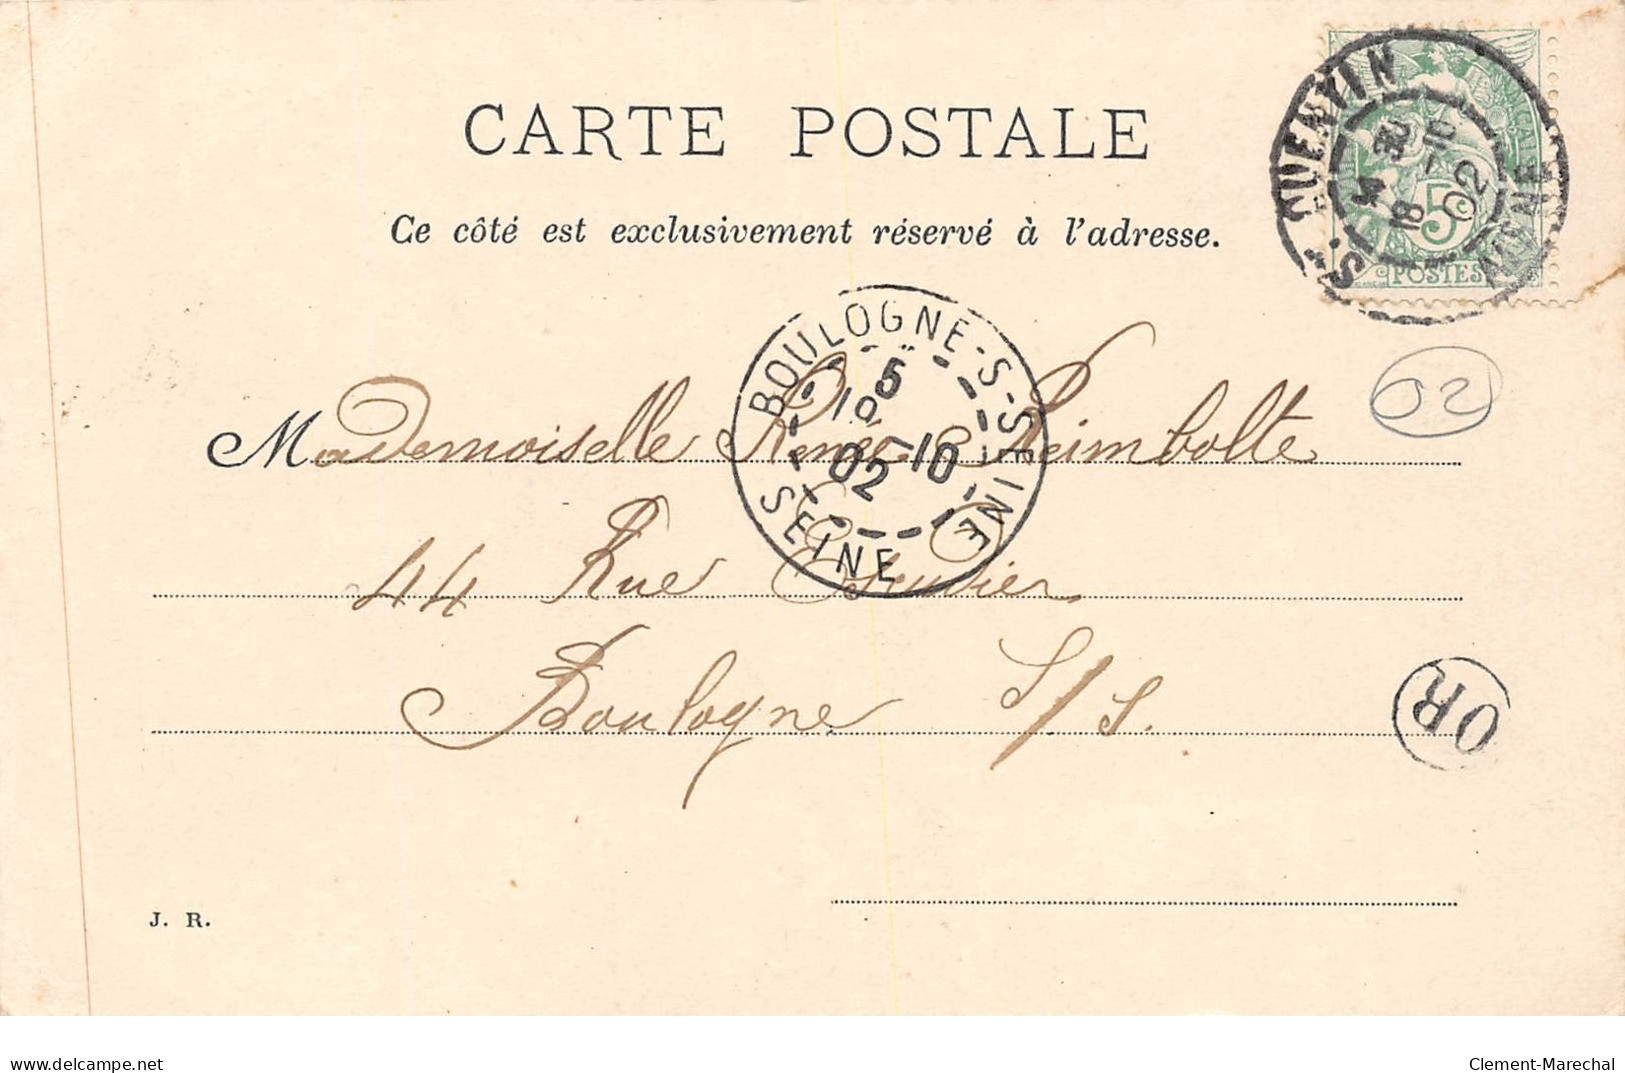 CARTE POSTALE
Ce côté est exclusivement réservé à l'adresse.
ST QUENTIN
AISNE
18 -10
02
5
POSTES
BOULOGNE-S-SEINE
SEINE
5
18 -10
02
02
Mademoiselle Renée Reimbolte
44 Rue
Boulogne S/S.
OR
J. R.
delcampe.net
Clement-Marechal